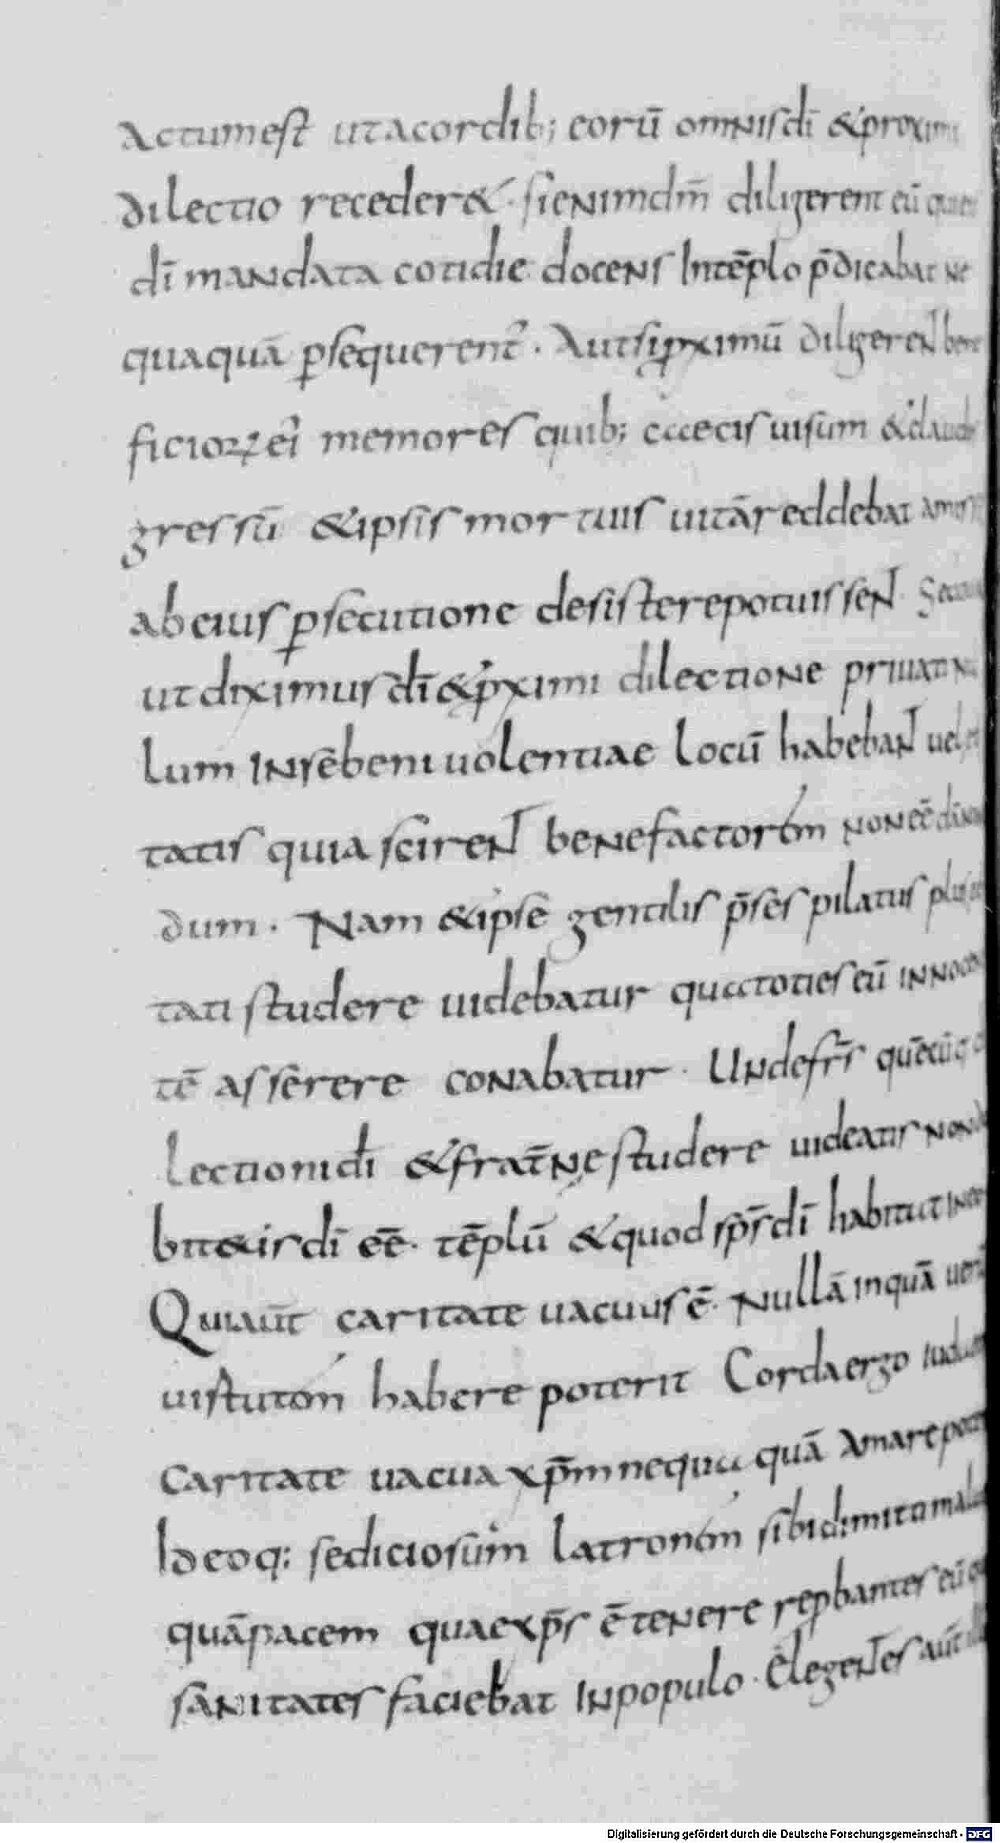 Actum est ut a cordib; eorū omnis dī & proximi
dilectio receder&. si enim dm̄ diligerent eū qui
dī mandata cotidie docens In tēplo p̄dicabat ne
quaquā ꝑsequerent̄. Aut si ꝓximū diligeren̄t bene
ficioꝝ ei memores quib; cecis uisum & claudis
gressū & ipsis mortuis uitā reddebat
ab eius ꝑsecutione desistere potuissen̄t.
ut diximus dī & ꝓximi dilectione priuati
lum in se beniuolentiae locū habeban̄t uel
tatis quia sciren̄t benefactorēm non eē
dum. Nam & ipse gentilis p̄ses pilatus
tati studere uidebatur qua toties eū innocen
tē asserere conabatur. Unde fr̄s
lectioni dī & frat̄ne studere uideatis non
bit&is dī eē. tēplū & quod sp̄s dī habitat in
Quia aūt caritate uacuus ē. Nullā inquā
uistutōm habere poterit Corda ergo
caritate uacua xp̄m nequa quā amare
Ideoq; sediciosūm latronōm sibi dimitti
quā pacem quae xp̄s ē tenere reꝓbantes eū
sanitates faciebat In populo. Elegen̄tes aūt